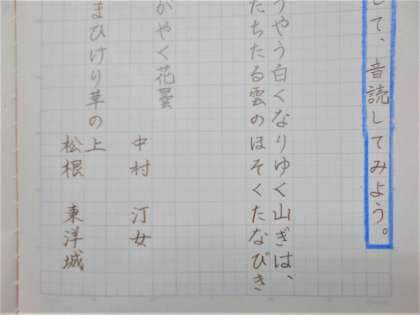 して、音読してみよう。
うやう白くなりゆく山ぎは、
たちたる雲のほそくたなびき
かやく花曇
中村 汀女
まひけり草の上
松根 東洋城